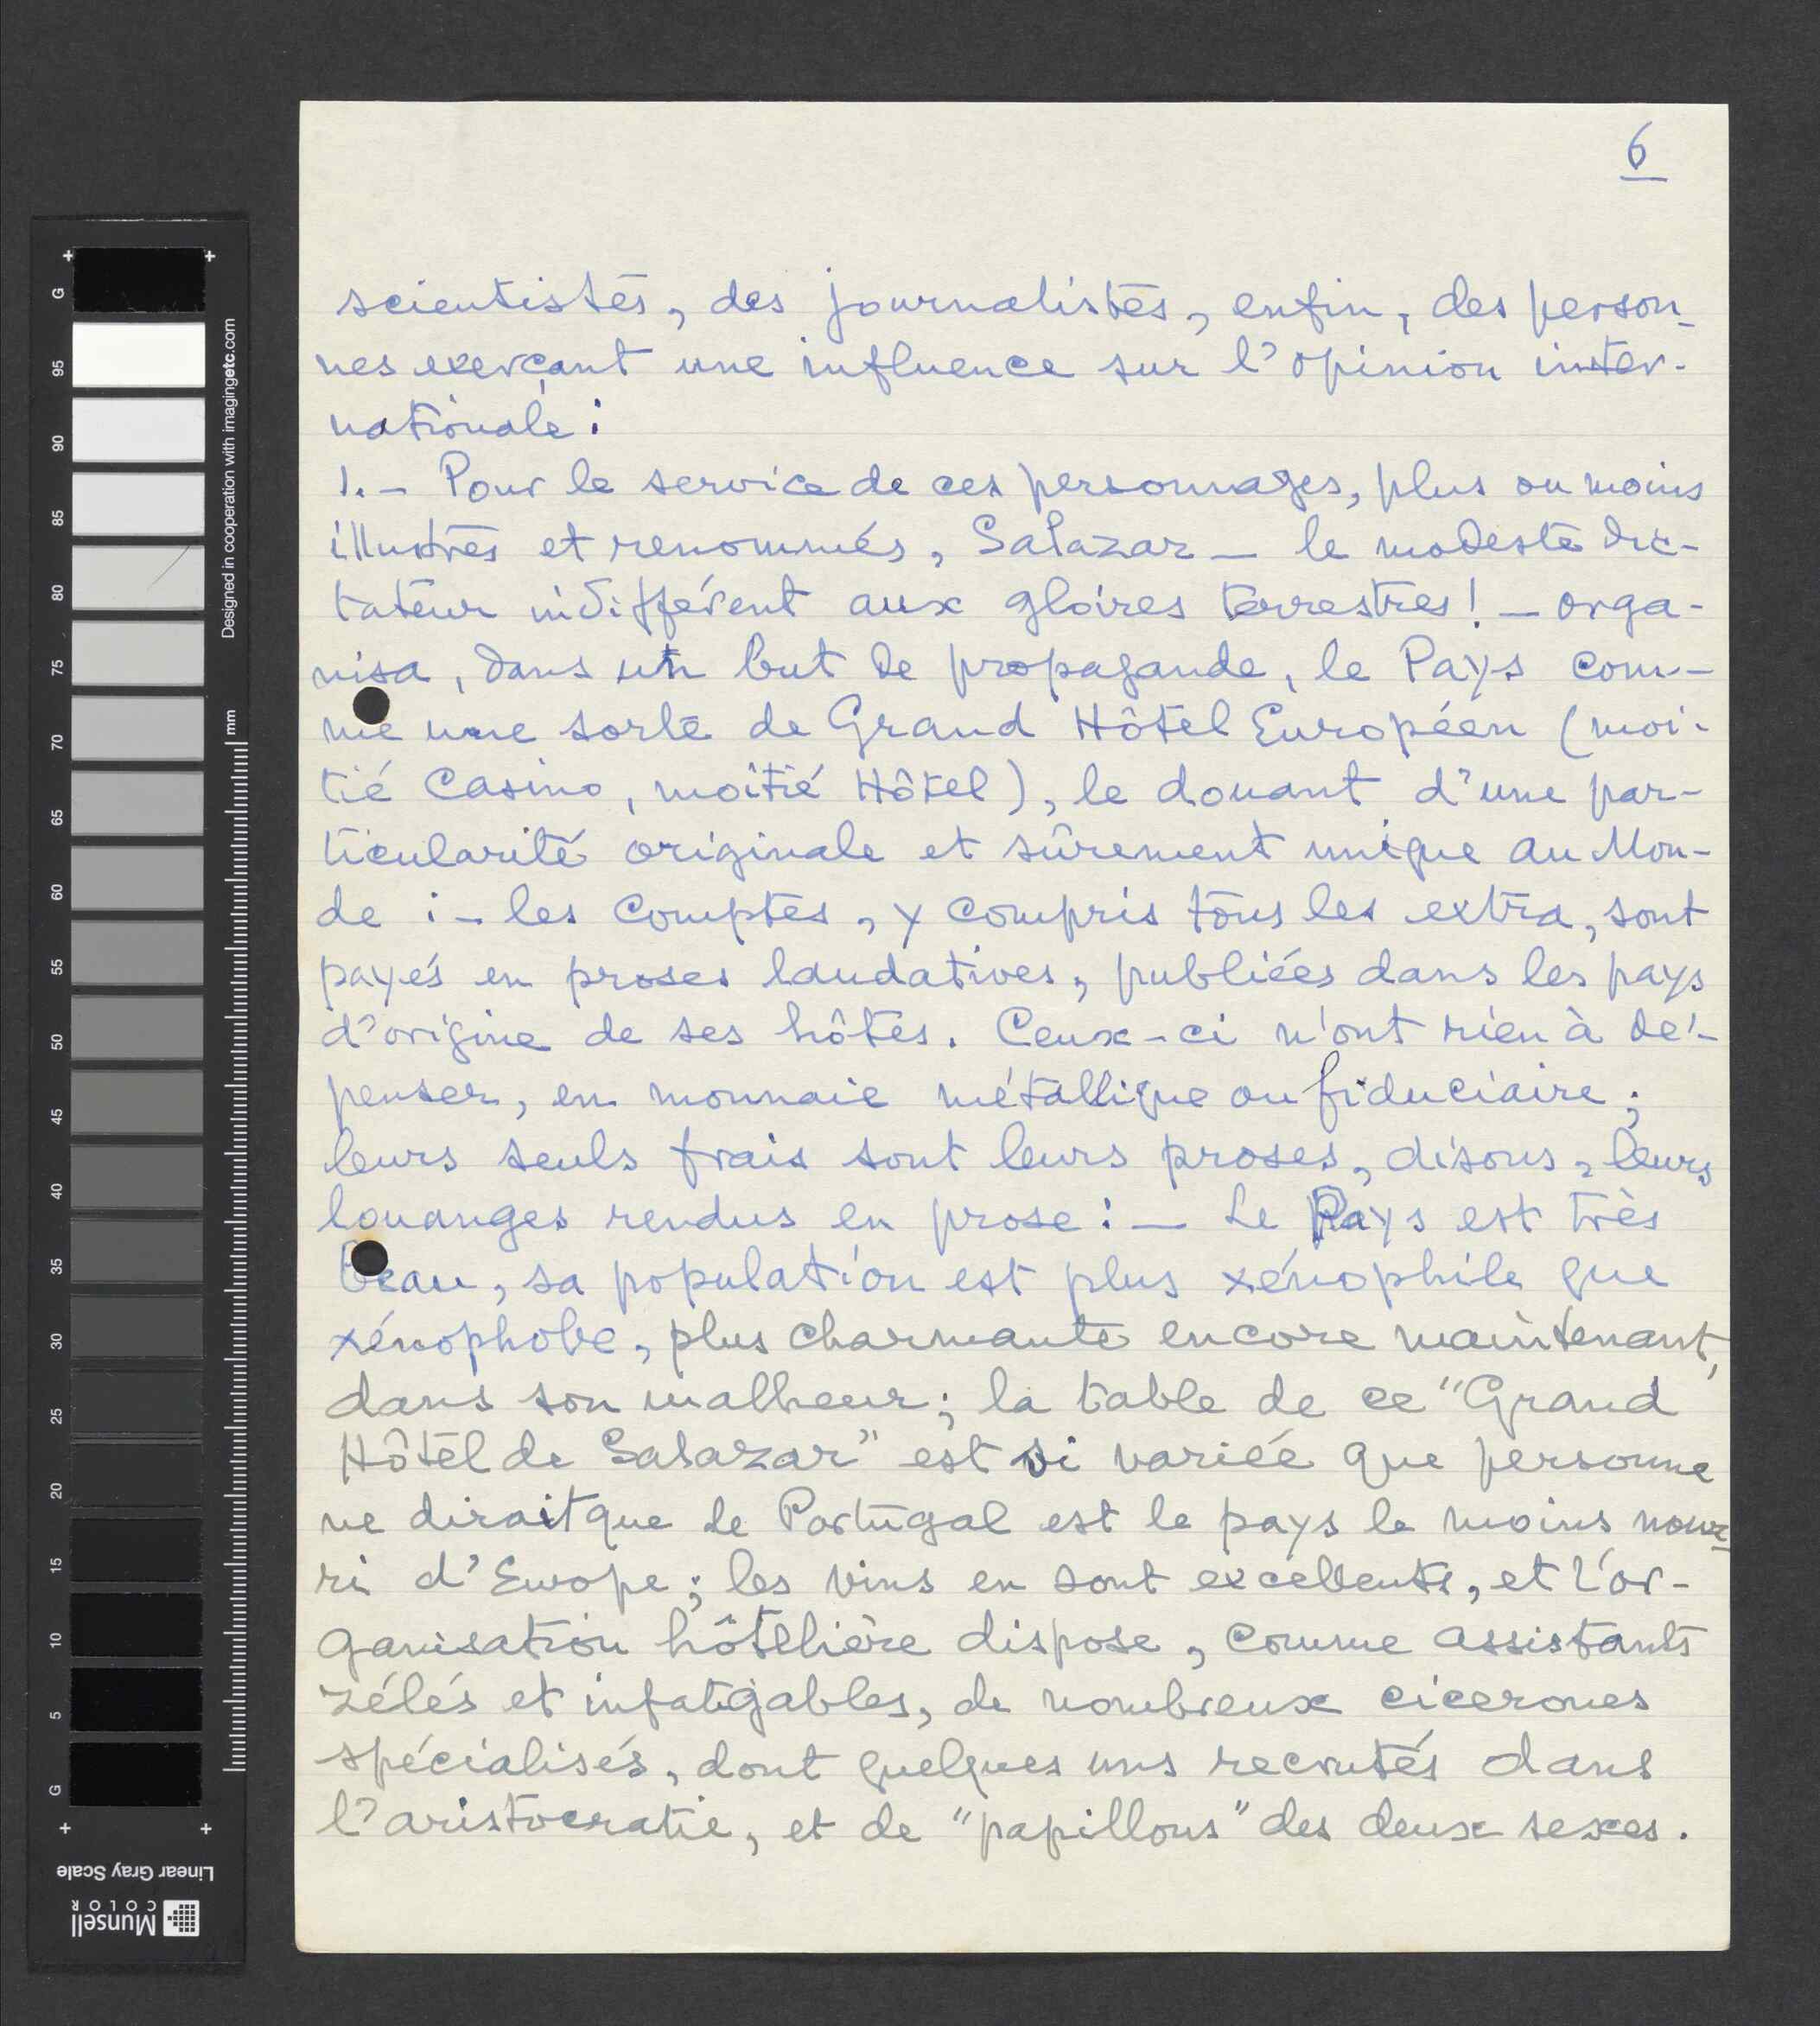 6
scientistes, des journalistes, enfin, des person-
nes exerçant une influence sur l'opinion inter-
nationale :
1. - Pour le service de ces personnages, plus ou moins
illustres et renommés, Salazar - le modeste dic-
tateur indifférent aux gloires terrestres! - orga-
nisa, dans un but de propagande, le Pays com-
me une sorte de Grand Hôtel Européen (moi-
tié Casino, moitié Hôtel), le douant d'une par-
ticularité originale et sûrement unique au Mon-
de : - les comptes, y compris tous les extra, sont
payés en proses laudatives, publiées dans les pays
d'origine de ses hôtes. Ceux-ci n'ont rien à dé-
penser, en monnaie métallique ou fiduciaire ;
leurs seuls frais sont leurs proses, disons, leurs
louanges rendus en prose : - Le Pays est très
beau, sa population est plus xénophile que
xénophobe, plus charmante encore maintenant,
dans son malheur ; la table de ce "Grand
Hôtel de Salazar" est si variée que personne
ne dirait que le Portugal est le pays le moins nour-
ri d'Europe ; les vins en sont excellents, et l'or-
ganisation hôtelière dispose, comme assistants
zélés et infatigables, de nombreux cicerones
spécialisés, dont quelques uns recrutés dans
l'aristocratie, et de "papillons" des deux sexes.
G
95
90
85
80
75
70
65
60
55
50
45
40
35
30
25
20
15
10
5
G
Designed in cooperation with imagingetc.com
mm
Linear Gray Scale
Munsell
COLOR